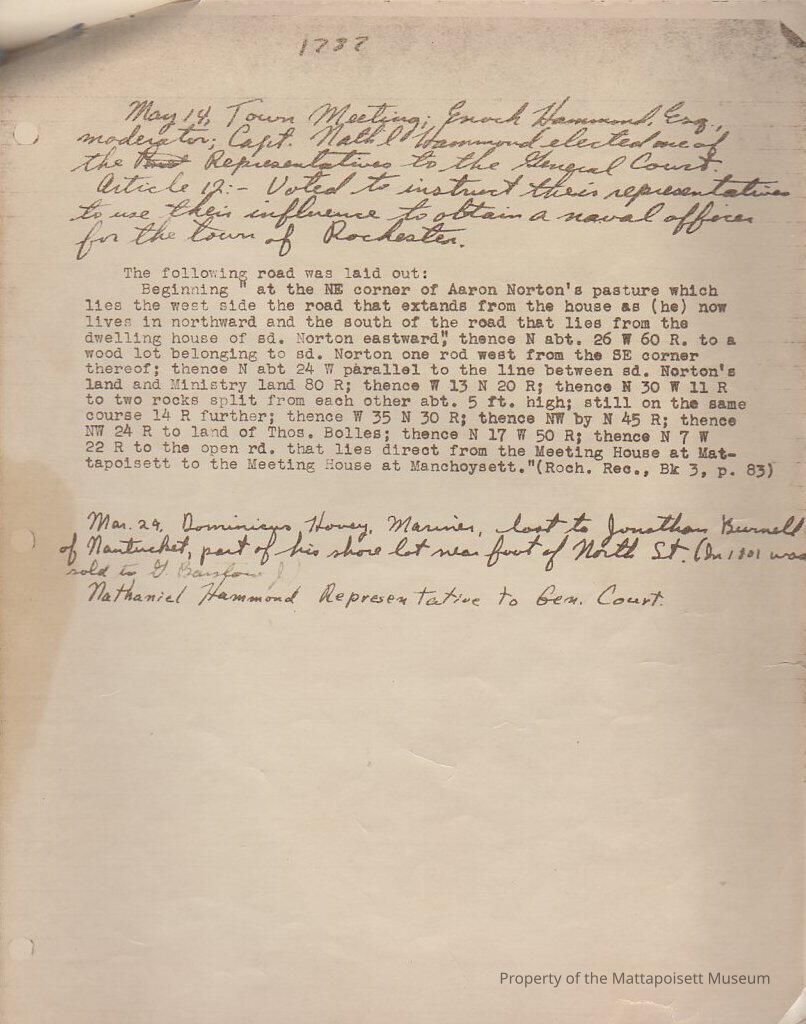 1787
May 14, Town Meeting; Enoch Hammond, Esq.,
moderator; Capt. Nath'l Hammond elected one of
the Representatives to the General Court.
Article 12:- Voted to instruct their representatives
to use their influence to obtain a naval officer
for the town of Rochester.
The following road was laid out:
Beginning " at the NE corner of Aaron Norton's pasture which
lies the west side the road that extands from the house as (he) now
lives in northward and the south of the road that lies from the
dwelling house of sd. Norton eastward", thence N abt. 26 W 60 R. to a
wood lot belonging to sd. Norton one rod west from the SE corner
thereof; thence N abt 24 W parallel to the line between sd. Norton's
land and Ministry land 80 R; thence W 13 N 20 R; thence N 30 W 11 R
to two rocks split from each other abt. 5 ft. high; still on the same
course 14 R further; thence W 35 N 30 R; thence NW by N 45 R; thence
NW 24 R to land of Thos. Bolles; thence N 17 W 50 R; thence N 7 W
22 R to the open rd. that lies direct from the Meeting House at Mat-
tapoisett to the Meeting House at Manchoysett."(Roch. Rec., Bk 3, p. 83)
Mar. 29. Dominicus Hovey, Mariner, lost to Jonathan Burnell
of Nantucket, part of his shore lot near foot of North St. (In 1801 was
sold to G Barstow J)
Nathaniel Hammond Representative to Gen. Court.
Property of the Mattapoisett Museum